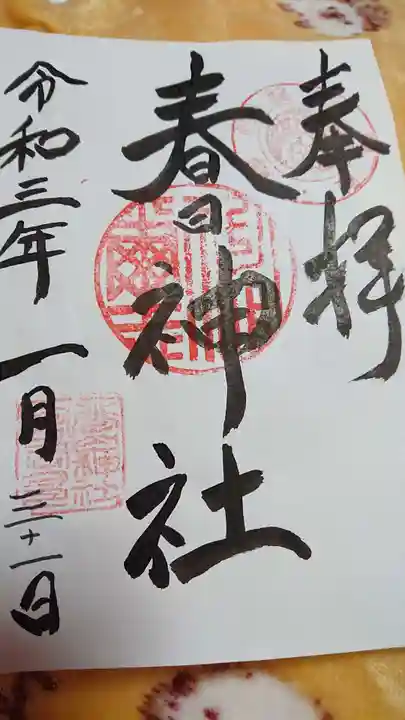 奉拝
春日神社
令和三年一月三十一日